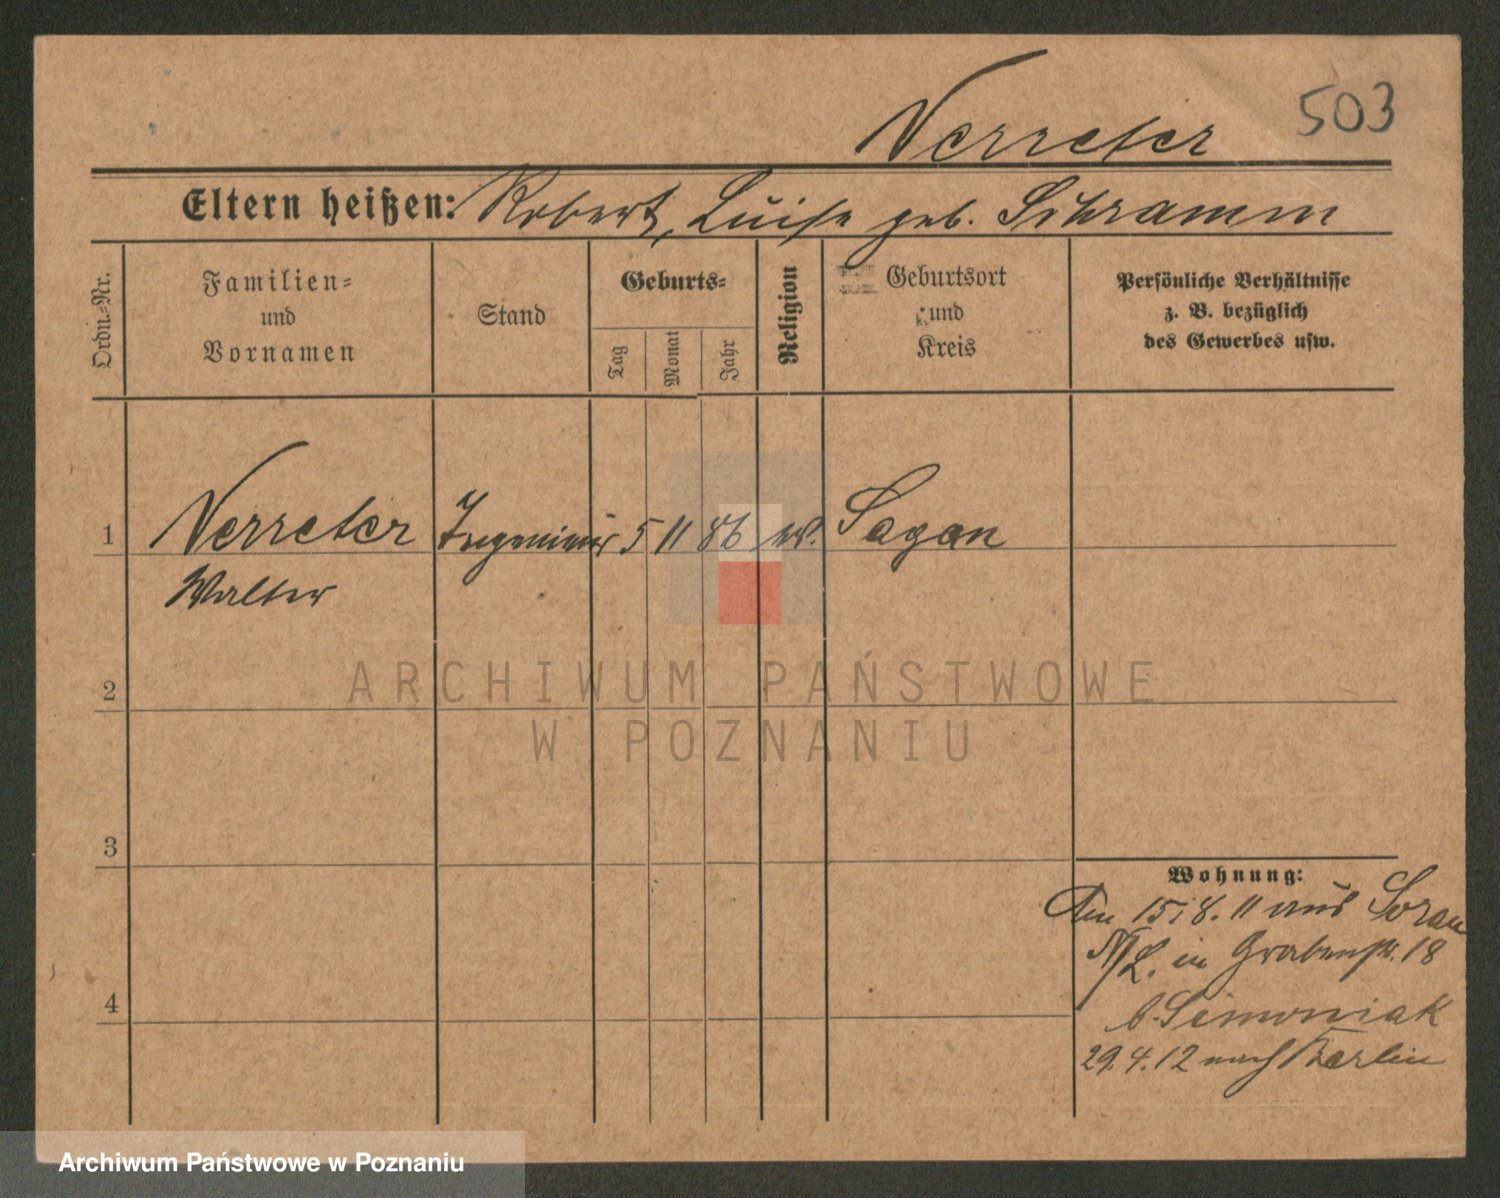 503
Verreter
Eltern heißen: Robert, Luise geb. Schramm
Ordn.-Nr.
Familien-
und
Vornamen
Stand
Geburts-
Tag
Monat
Jahr
Religion
Geburtsort
und
Kreis
Persönliche Verhältnisse
z. B. bezüglich
des Gewerbes usw.
1 Verreter Ingenieur 5 11 86 Sagan
Walter
2
3
4
Wohnung:
Am 15/8. 11 aus Sorau
N/L. in Grabenstr. 18
b. Simoniak
29.4.12 nach Berlin
ARCHIWUM PAŃSTWOWE
W POZNANIU
Archiwum Państwowe w Poznaniu